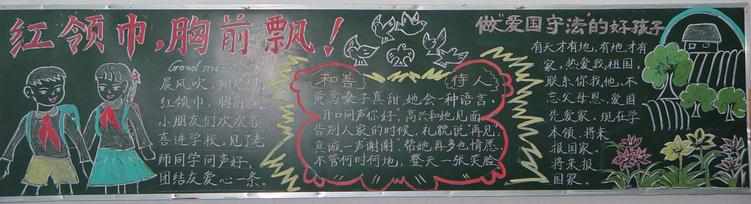 红领巾，胸前飘！
Good mo
晨风吹，
红领巾，胸前
小朋友们欢欢
喜进学校，见了老
师同学问声好，
团结友爱心一条。
和善 待人
嗓子真甜，她会一种语言，
开口问声你好，高兴和她见面，
告别人家的时候，礼貌说“再见”，
真诚一声“谢谢”，给她再多也情愿，
不管何时何地，整天一张笑脸
做“爱国守法”的好孩子
有天才有地，有地才有
家，热爱我祖国，
联系你我他，不
忘父母恩，爱国
先爱家，现在学
本领，将来
报国家，
将来报
国家。